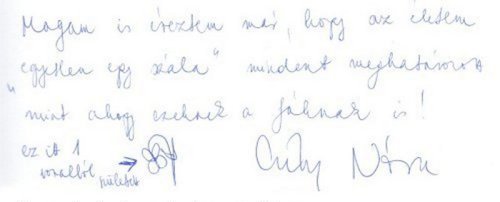 Magam is éreztem már, hogy az életem
"egyetlen egy szála" mindent meghatározott
mint ahogy ezeknek a fáknak is!
ez itt 1
vonalból született →